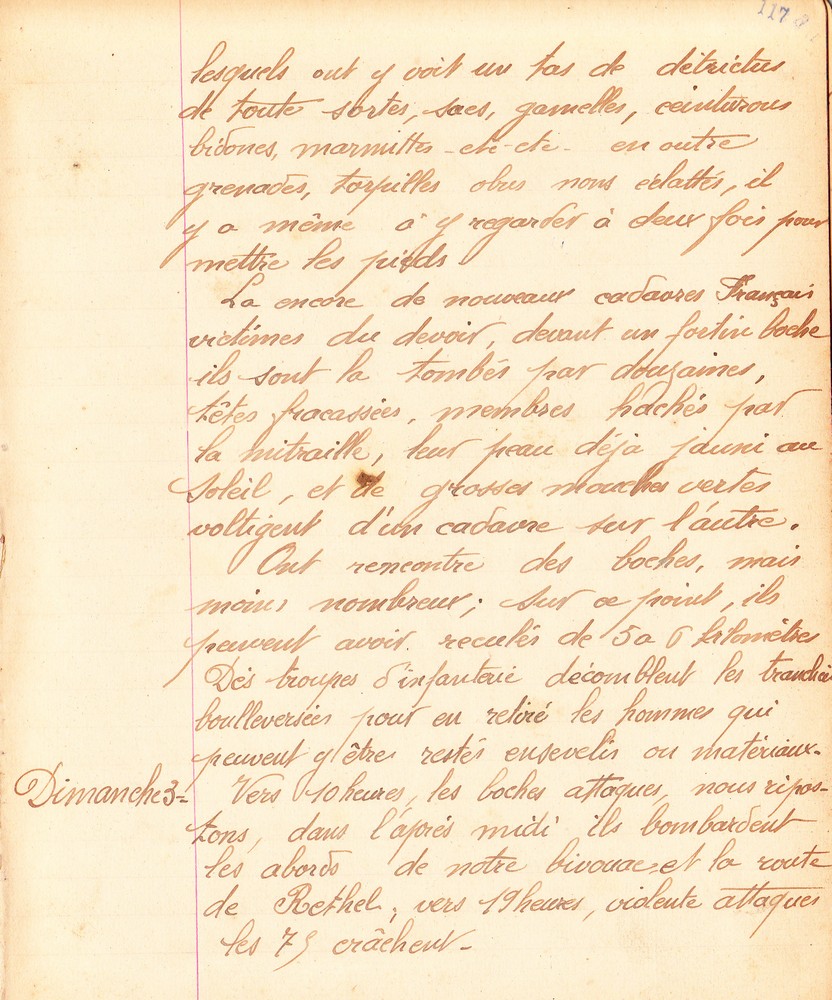 117
lesquels ont y voit un tas de détrictus
de toute sortes, sacs, gamelles, ceinturons
bidones, marmittes - etc-etc - en outre
grenades, torpilles obus nons éclattés, il
y a même a y regarder à deux fois pour
mettre les pieds
La encore de nouveaux cadavres Français
victimes du devoir, devant un fortin boche
ils sont la tombés par douzaines,
têtes fracassées, membres hachés par
la mitraille, leur peau déja jauni au
Soleil, et de grosses mouches vertes
voltigent d'un cadavre sur l'autre.
Ont rencontre des boches, mais
moins nombreux; sur ce point, ils
peuvent avoir reculés de 5 a 6 kilomètres
Dés troupes d'infanterie décomblent les tranchées
boulleversées pour en retiré les hommes qui
peuvent y être restés ensevelis ou matériaux.
Dimanche 3= Vers 10 heures, les boches attaques, nous ripos-
tons, dans l'après midi ils bombardent
les abords de notre bivouac, et la route
de Rethel; vers 19 heures, violente attaques
les 75 crâchent -